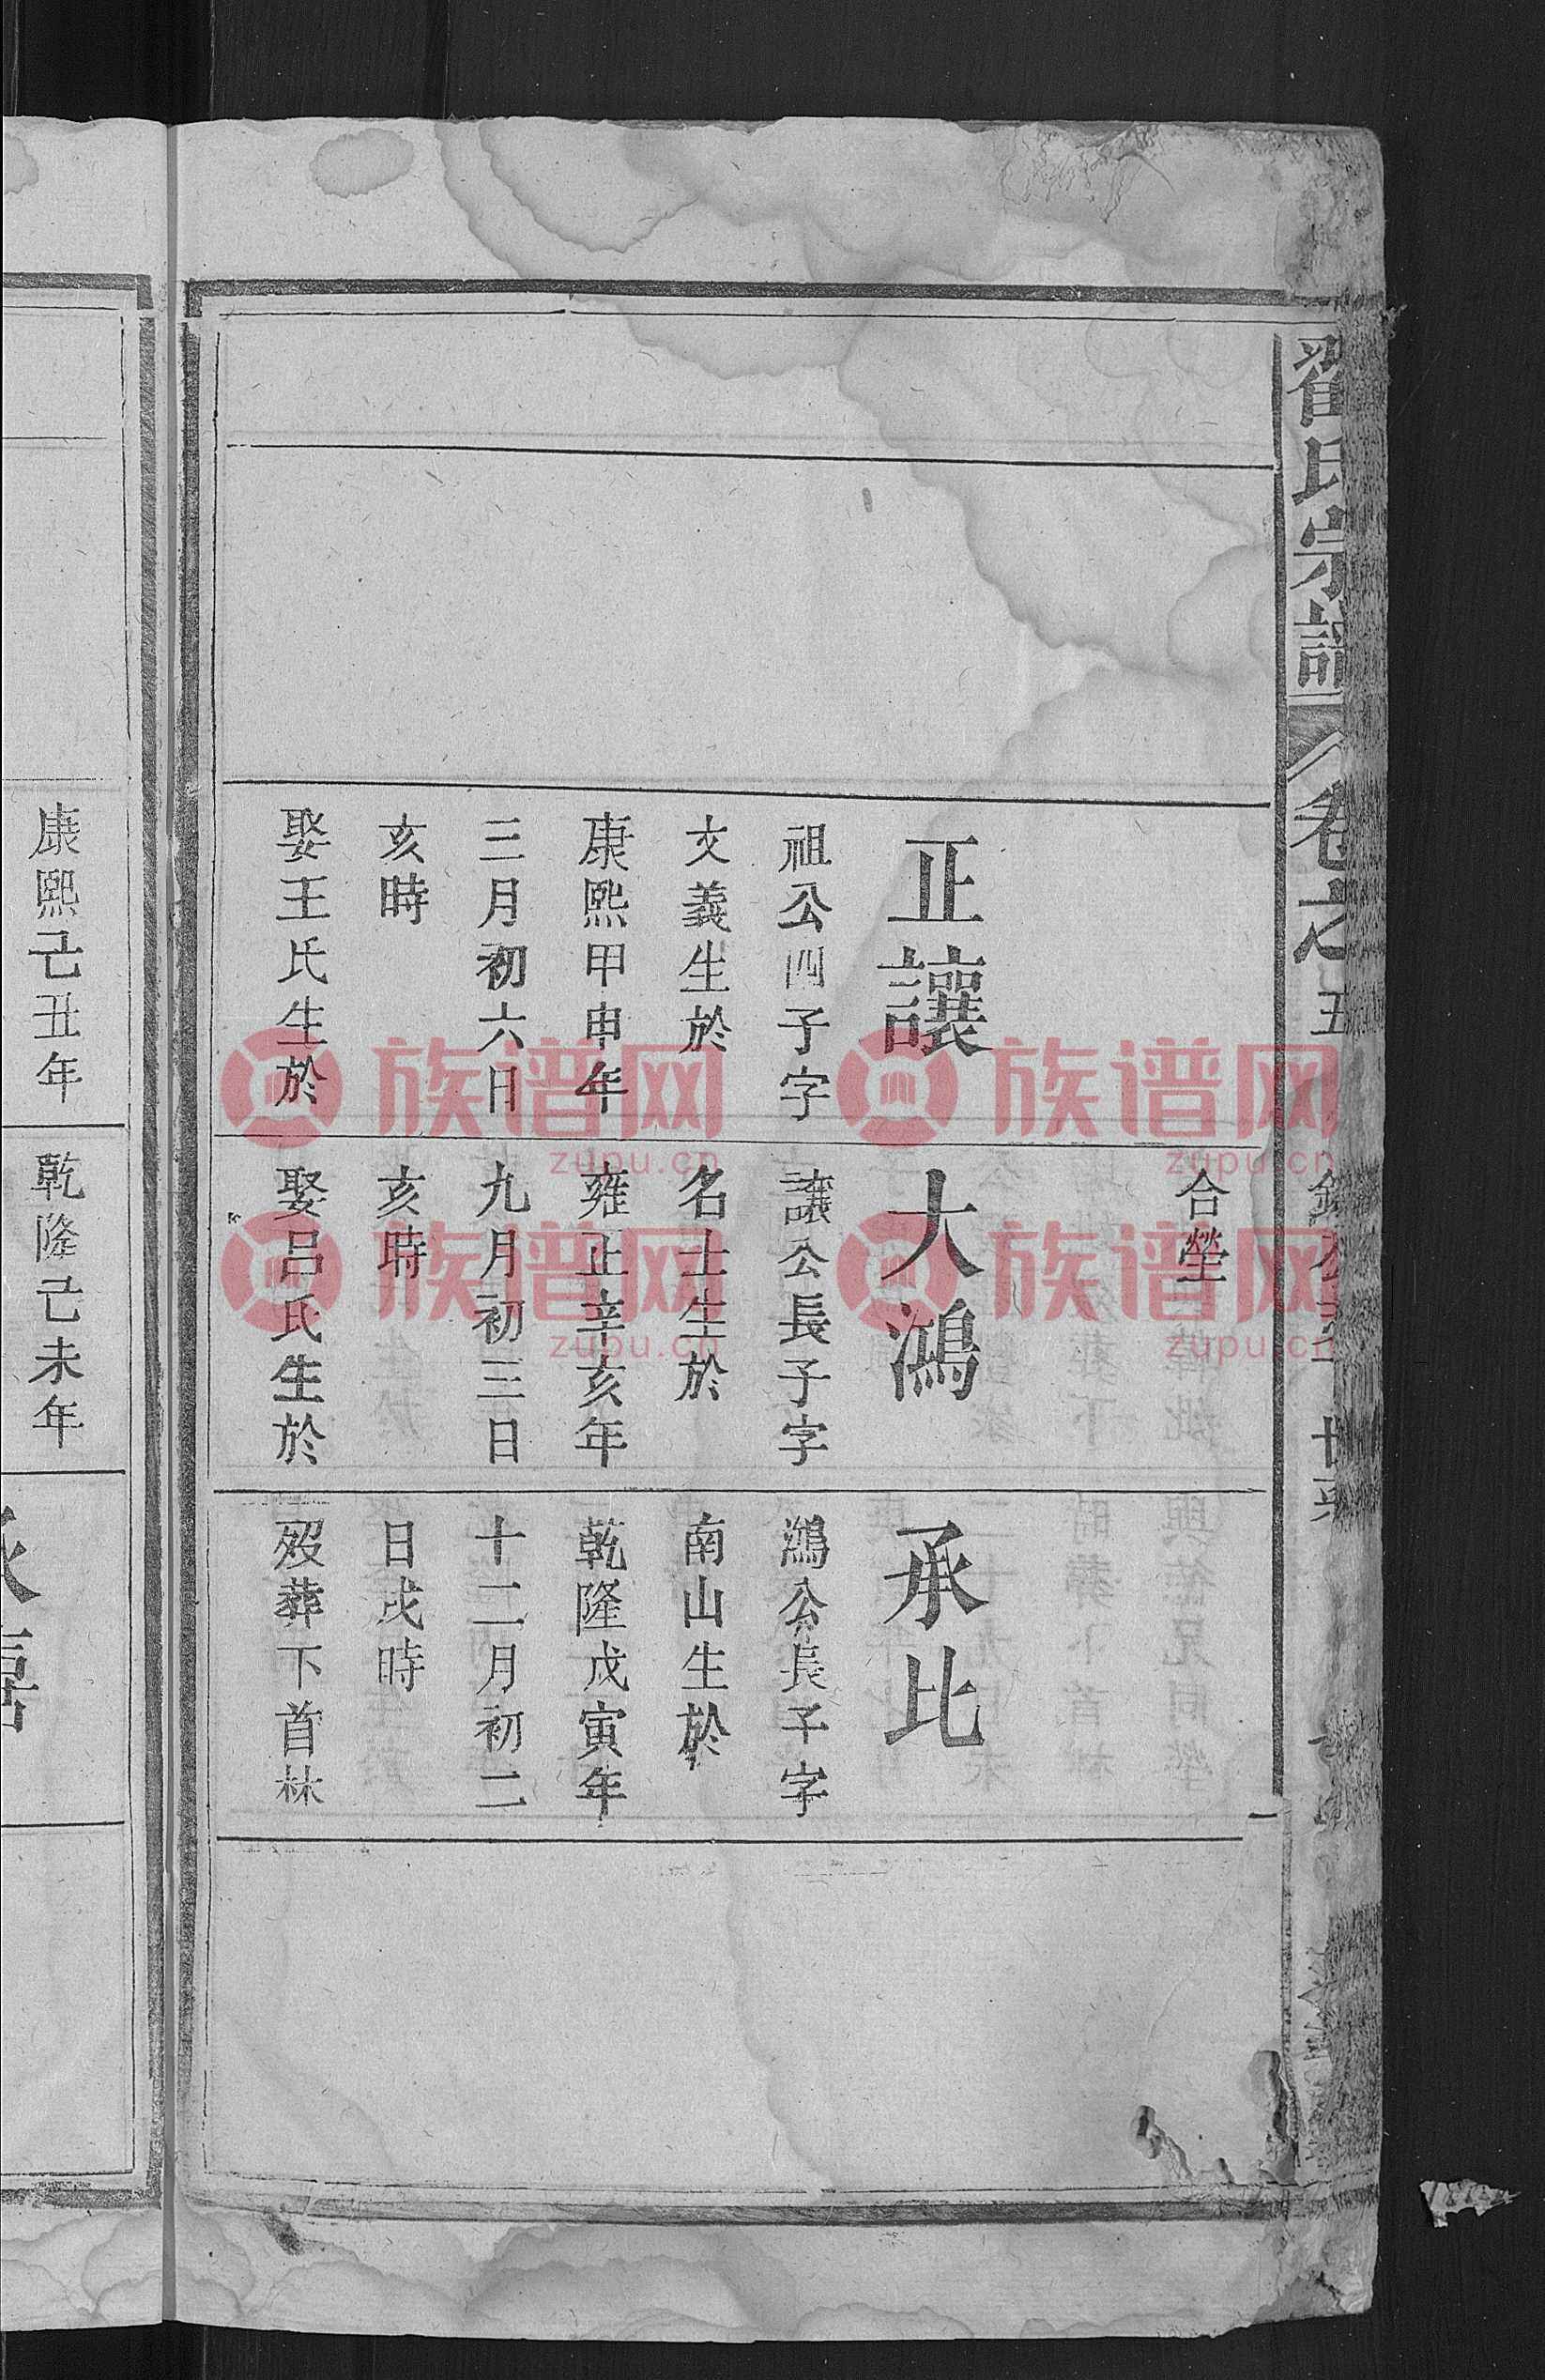 翟氏宗譜
卷之五
合塋
正讓
祖公四子字
文義生於
康熙甲申年
三月初六日
亥時
娶王氏生於
大鴻
讓公長子字
名士生於
雍正辛亥年
九月初三日
亥時
娶吕氏生於
承比
鴻公長子字
南山生於
乾隆戊寅年
十二月初二
日戌時
歿葬下首林
康熙己丑年
乾隆己未年
族谱网
zupu.cn
族谱网
zupu.cn
族谱网
zupu.cn
族谱网
zupu.cn